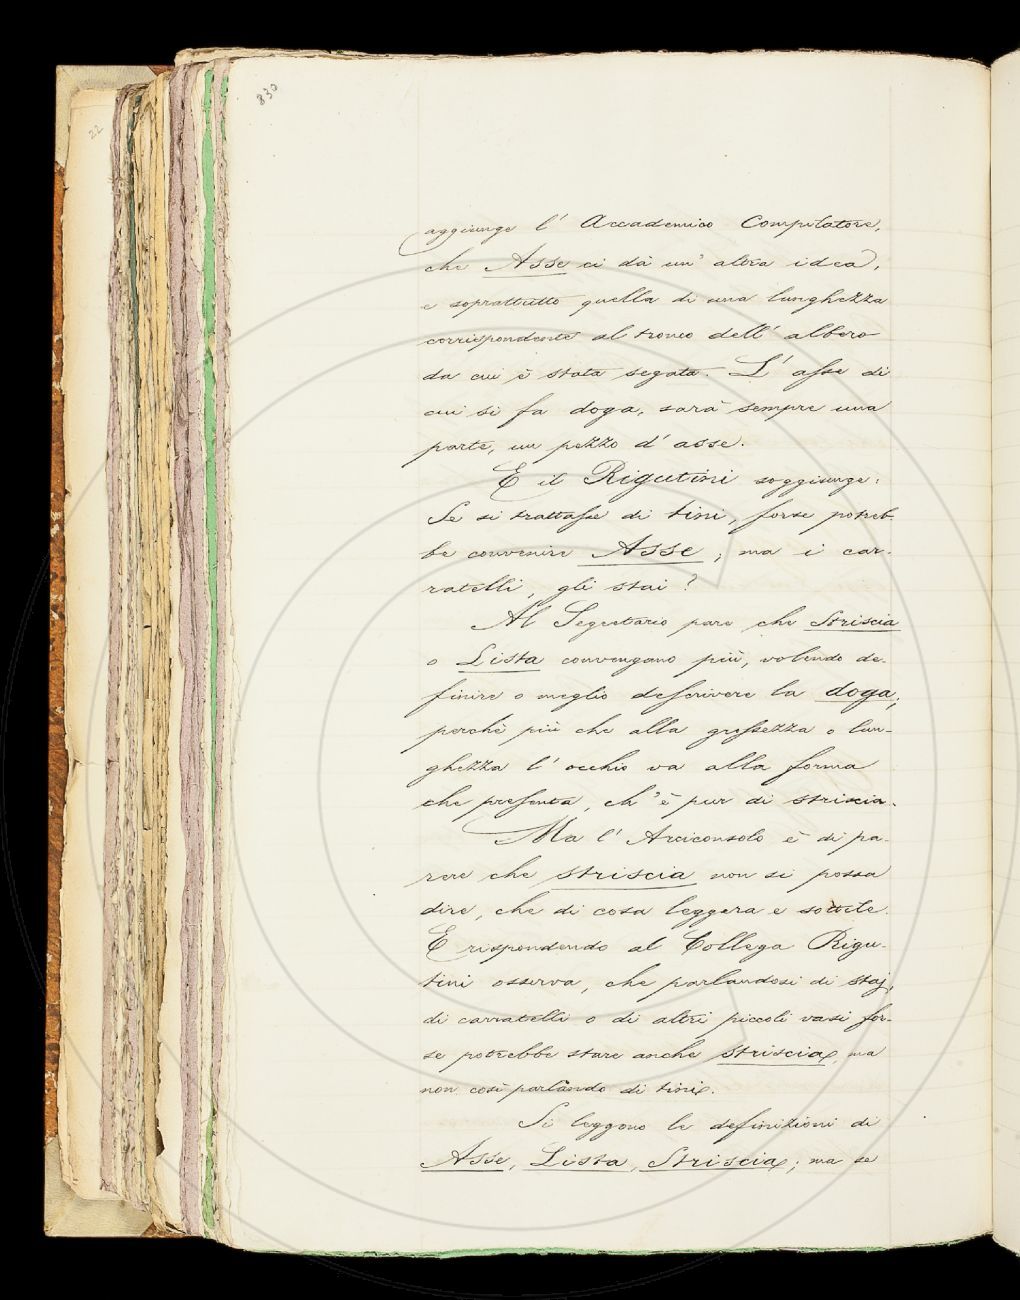 830
22
aggiunge l' Accademico Compilatore,
che Asse ci dà un' altra idea,
e soprattutto quella di una lunghezza
corrispondente al tronco dell' albero
da cui è stata segata. L' asse di
cui si fa doga, sarà sempre una
parte, un pezzo d' asse.
E il Rigutini soggiunge:
Se si trattasse di tini, forse potreb-
be convenire Asse; ma i car-
ratelli, gli stai?
Al Segretario pare che Striscia
o Lista convengano più, volendo de-
finire o meglio descrivere la doga;
perchè più che alla grossezza o lun-
ghezza l' occhio va alla forma
che presenta, ch' è pur di striscia.
Ma l' Arciconsolo è di pa-
rere che striscia non si possa
dire, che di cosa leggera e sottile.
E rispondendo al Collega Rigu-
tini osserva, che parlandosi di staj,
di carratelli o di altri piccoli vasi for-
se potrebbe stare anche striscia, ma
non così parlando di tini.
Si leggono le definizioni di
Asse, Lista, Striscia; ma se